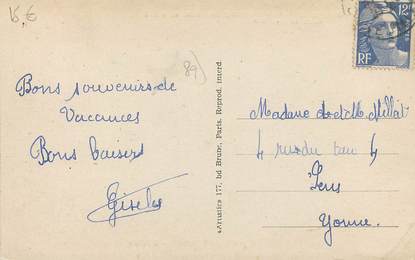 15 €
89)
12F
RF
Bons souvenirs de
Vacances
Bons baisers
Gisele
Artistics 177, bd Brune, Paris. Reprod. interd
Madame et M. Millat
4 rue du 4
Sens
Yonne.